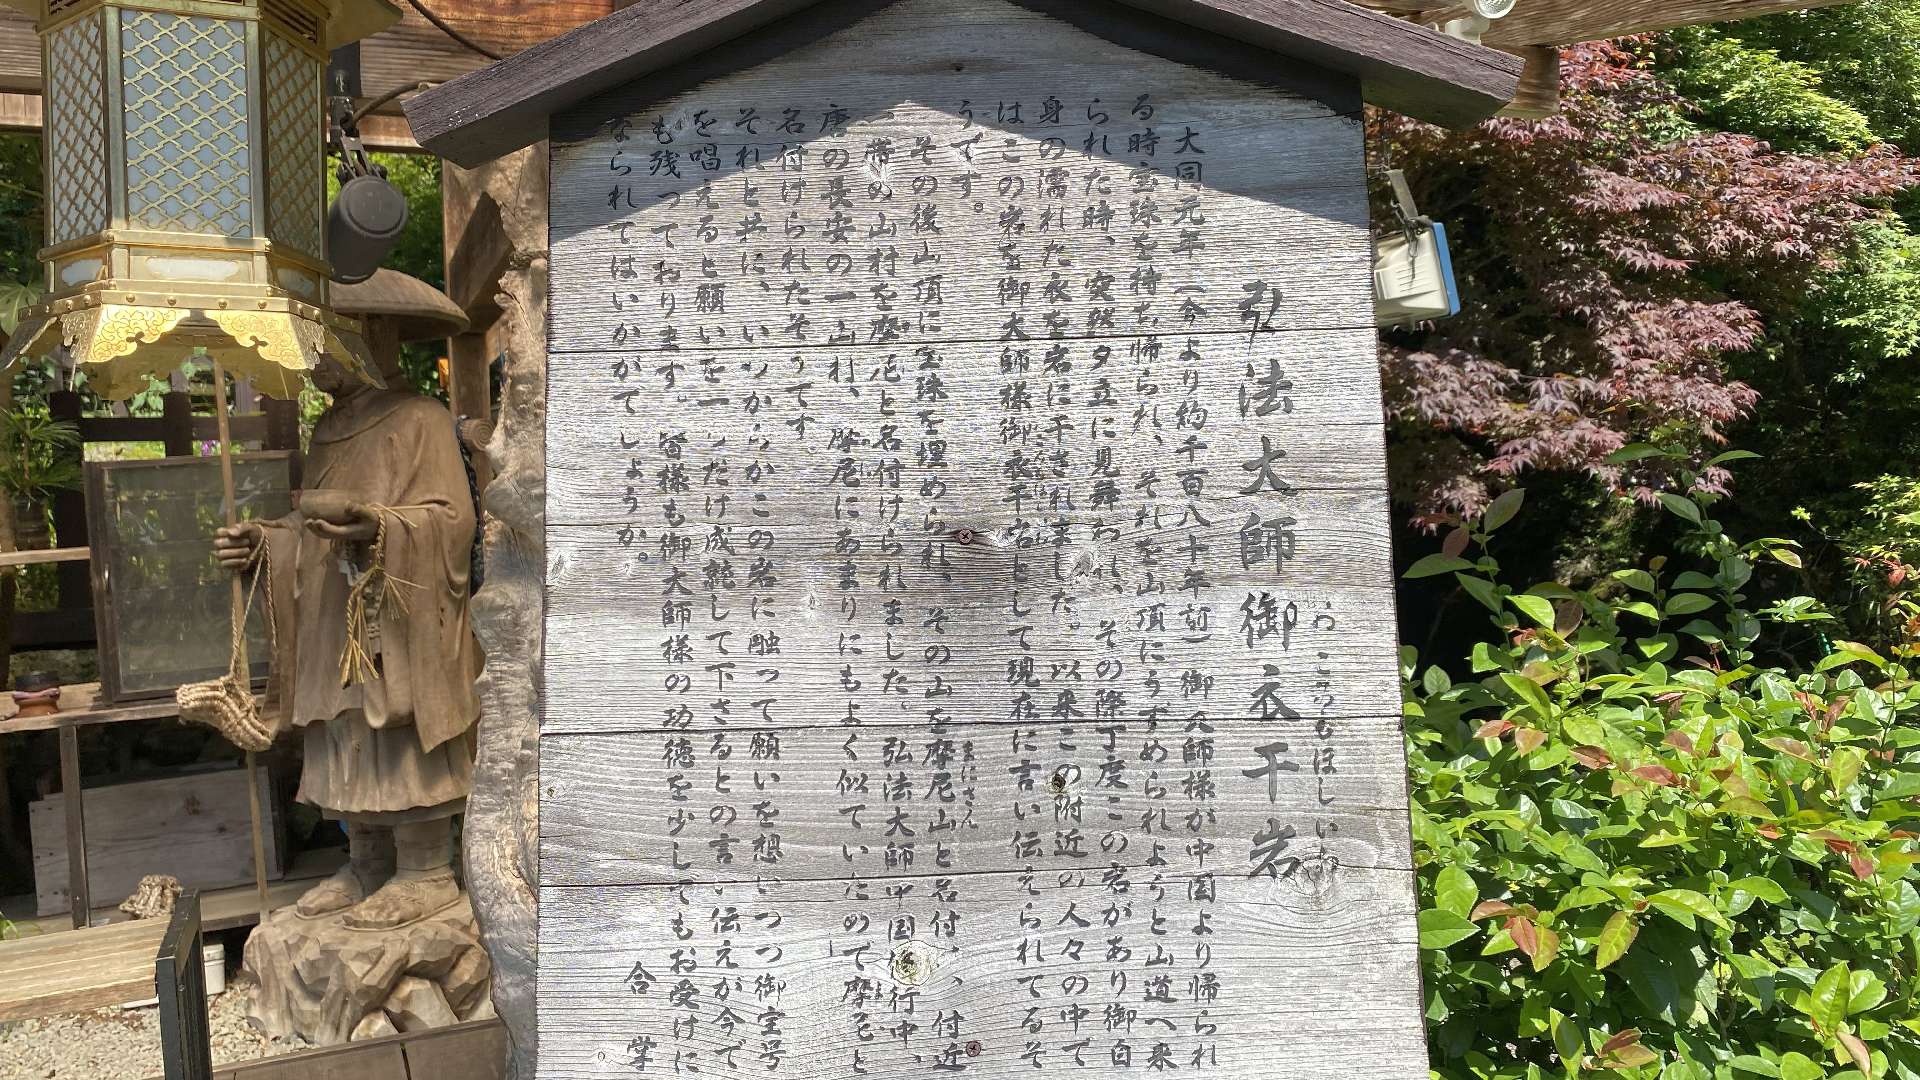 弘法大師御衣干岩
おころもほしいわ
大同元年(今より約千百八十年前)御大師様が中国より帰られ
る時宝珠を持ち帰られ、それを山頂にうずめられようと山道へ来
られた時、突然夕立に見舞われ、その際丁度この岩があり御自
身の濡れた衣を岩に干されました。以来この附近の人々の中で
はこの岩を御大師様御衣干岩として現在に言い伝えられてるそ
うです。
その後山頂に宝珠を埋められ、その山を摩尼山と名付、、付近
まにさん
一帯の山村を摩尼と名付けられました。弘法大師中国修行中、
唐の長安の一山村、摩尼にあまりにもよく似ていたので摩尼と
名付けられたそうです。
それと共に、いつからかこの岩に触って願いを想いつつ御宝号
を唱えると願いを一つだけ成就して下さるとの言い伝えが今で
も残っております。皆様も御大師様の功徳を少しでもお受けに
なられてはいかがでしょうか。
合掌。